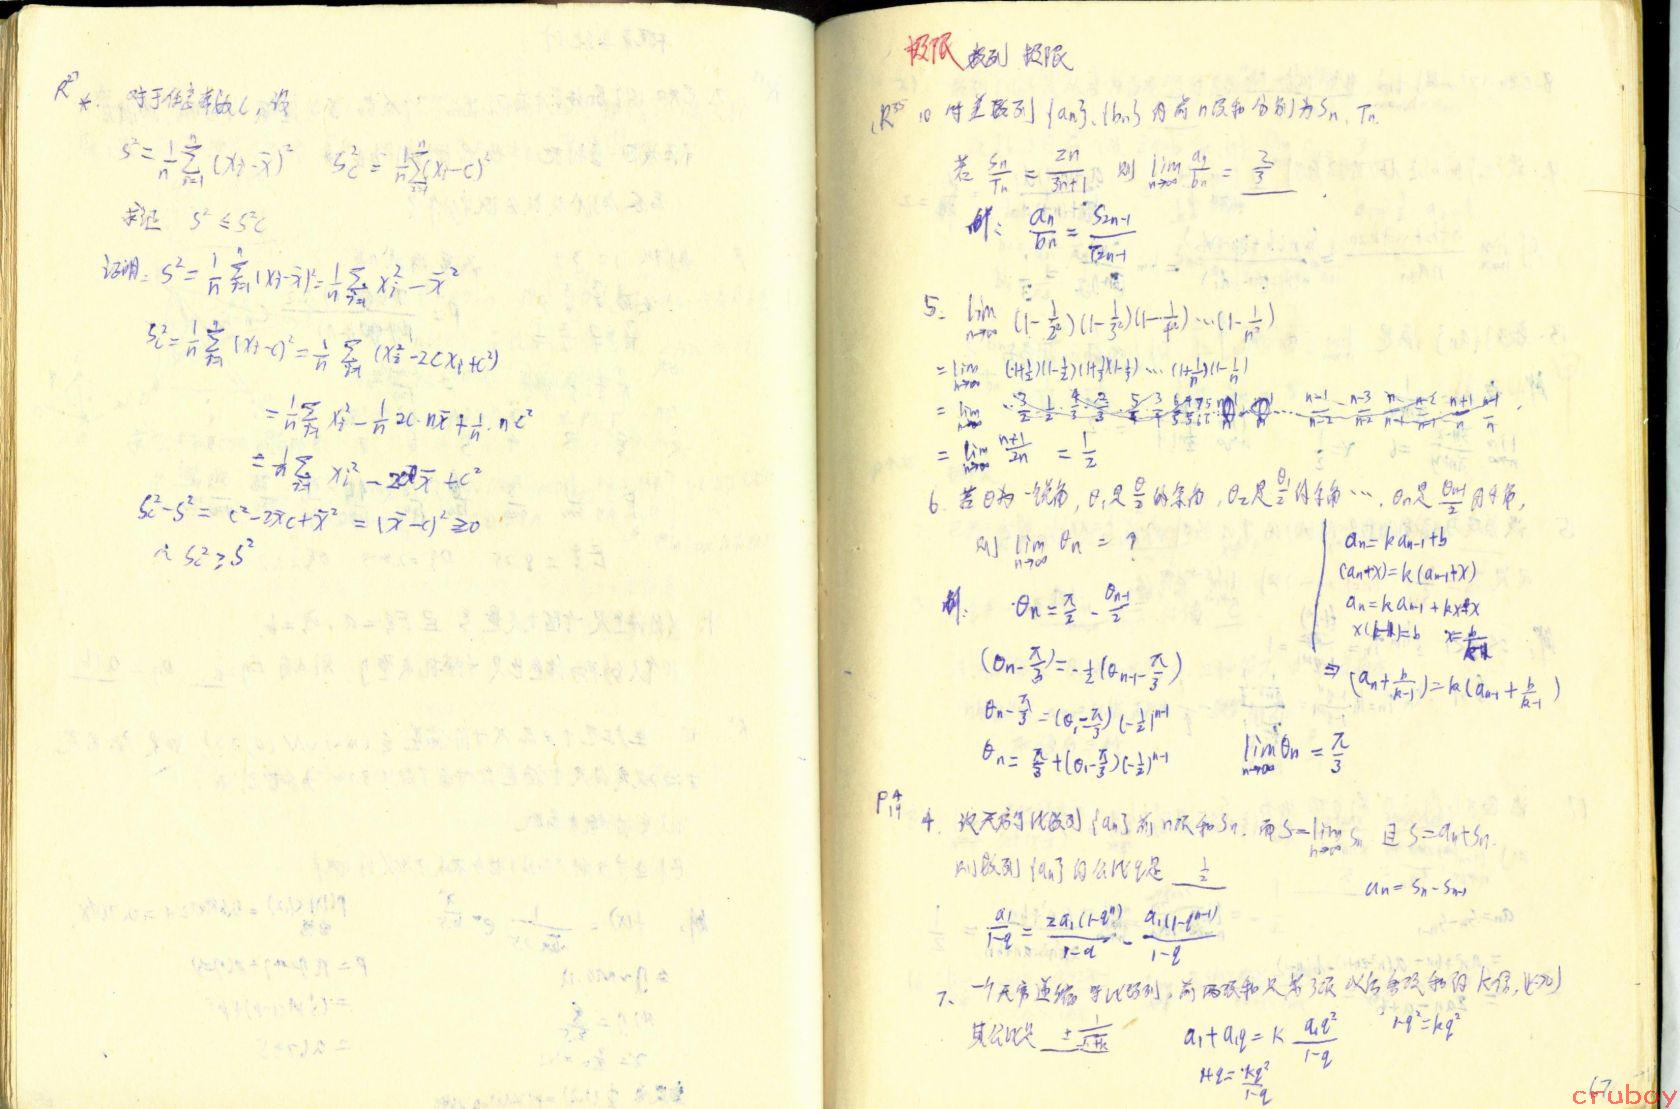 R²⁷
* 对于任意常数C,设
S² = 1/n Σ(i=1..n) (xi - x̄)²  Sc² = 1/n Σ(i=1..n) (xi - C)²
求证 S² ≤ S²c
证明: S² = 1/n Σ(i=1..n) (xi - x̄)² = 1/n Σ(i=1) xi² - x̄²
Sc² = 1/n Σ(i=1..n) (xi - c)² = 1/n Σ(i=1) (xi² - 2Cxi + c²)
= 1/n Σ(i=1) xi² - 1/n 2C·nx̄ + 1/n · nc²
= 1/n Σ(i=1) xi² - 2Cx̄ + c²
Sc² - S² = c² - 2x̄c + x̄² = (x̄ - c)² ≥ 0
∴ Sc² ≥ S²
极限 数列 极限
R³⁵ 10 等差数列{an}、{bn}的前n项和分别为Sn、Tn.
若 Sn/Tn = 2n/(3n+1) 则 lim(n→∞) an/bn = 2/3
解: an/bn = S2n-1/T2n-1
5. lim(n→∞) (1 - 1/2²)(1 - 1/3²)(1 - 1/4²)…(1 - 1/n²)
= lim(n→∞) (1+1/2)(1-1/2)(1+1/3)(1-1/3)…(1+1/n)(1-1/n)
= lim(n→∞) 3/2 · 1/2 · 4/3 · 2/3 · 5/4 · 3/4
= lim(n→∞) (n+1)/2n = 1/2
6. 若θ为一锐角, θ1是θ/2的余角, θ2是θ1/2的余角…, θn是θn-1/2的余角,
则 lim(n→∞) θn = ?
解. θn = π/2 - θn-1/2
(θn - π/3) = -1/2(θn-1 - π/3)
θn - π/3 = (θ1 - π/3)(-1/2)ⁿ⁻¹
θn = π/3 + (θ1 - π/3)(-1/2)ⁿ⁻¹  lim(n→∞) θn = π/3
an = kan-1 + b
(an + x) = k(an-1 + x)
an = kan-1 + kx - x
⇒ (an + b/(k-1)) = k(an-1 + b/(k-1))
P⁴₁₉ 4. 设无穷等比数列{an}前n项和Sn. 而S = lim(n→∞) Sn 且 S = an + Sn.
则数列{an}的公比q是 1/2
an = Sn - Sn-1
a1/(1-q) = 2a1(1-qⁿ)/(1-q) - a1(1-qⁿ⁻¹)/(1-q)
7、一个无穷递缩等比数列, 前两项和是第3项以后各项和的k倍, (k>0)
其公比是 ±1/√(1+k)  a1 + a1q = k a1q²/(1-q)  1-q² = kq²
1+q = kq²/(1-q)
67
cruboy